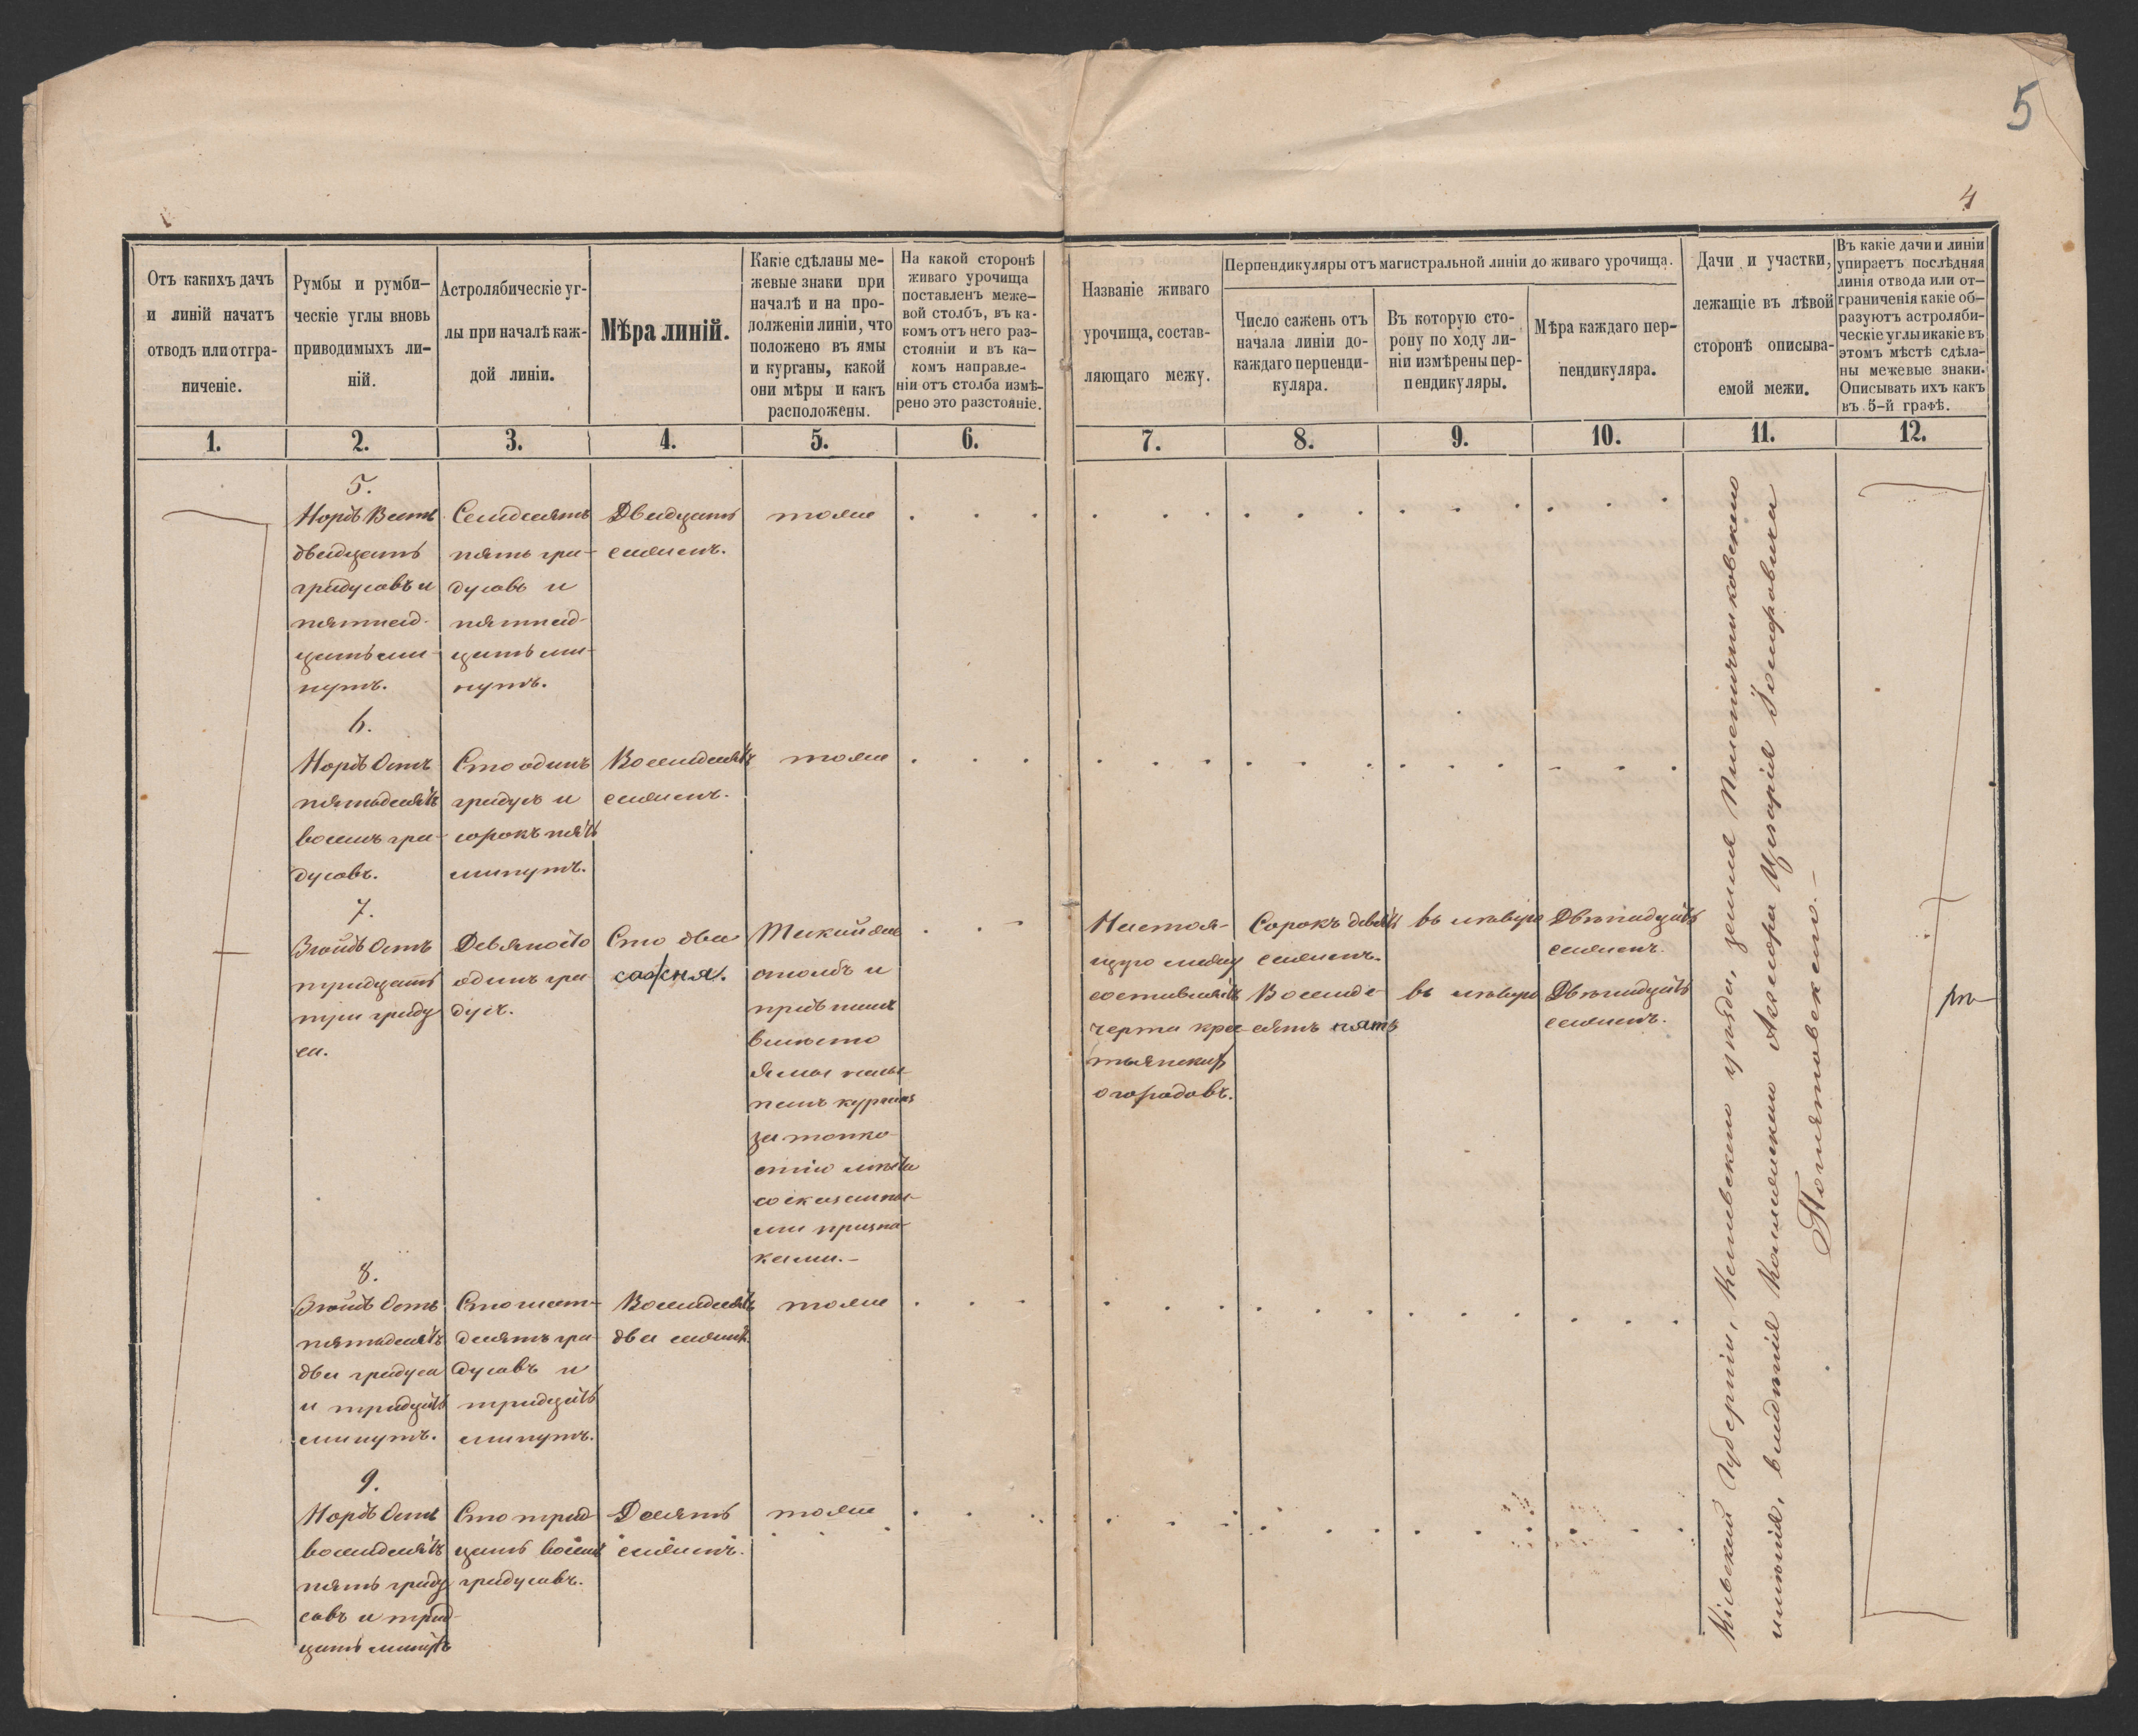 5
4
Отъ какихъ дачъ
и линій начатъ
отводъ или отгра-
ниченіе.
Румбы и румби-
ческіе углы вновь
приводимыхъ ли-
ній.
Астролябическіе уг-
лы при началѣ каж-
дой линіи.
Мѣра линій.
Какіе сдѣланы ме-
жевые знаки при
началѣ и на про-
долженіи линіи, что
положено въ ямы
и курганы, какой
они мѣры и какъ
расположены.
На какой сторонѣ
живаго урочища
поставленъ меже-
вой столбъ, въ ка-
комъ отъ него раз-
стояніи и въ ка-
комъ направле-
ніи отъ столба измѣ-
рено это разстояніе.
Названіе живаго
урочища, состав-
ляющаго межу.
Перпендикуляры отъ магистральной линіи до живаго урочища.
Число сажень отъ
начала линіи до
каждаго перпенди-
куляра.
Въ которую сто-
рону по ходу ли-
ніи измѣрены пер-
пендикуляры.
Мѣра каждаго пер-
пендикуляра.
Дачи и участки,
лежащіе въ лѣвой
сторонѣ описыва-
емой межи.
Въ какіе дачи и линіи
упираетъ послѣдняя
линія отвода или от-
граниченія какіе об-
разуютъ астроляби-
ческіе углы и какіе въ
этомъ мѣстѣ сдѣла-
ны межевые знаки.
Описывать ихъ какъ
въ 5-й графѣ.
1. 2. 3. 4. 5. 6. 7. 8. 9. 10. 11. 12.
5.
Нордъ Вестъ
двадцать
градусовъ и
пятнад-
цать ми-
нутъ.
Семдесятъ
пять гра-
дусовъ и
пятнад-
цать ми-
нутъ.
Двадцать
сажень.
тоже
6.
Нордъ Остъ
пятьдесятъ
восемь гра-
дусовъ.
Сто одинъ
градусъ и
сорокъ пять
минутъ.
Восемдесятъ
сажень.
тоже
7.
Зюйдъ Остъ
тридцать
три граду
са.
Девяносто
одинъ гра-
дусъ.
Сто два
сажня.
Такой же
столбъ и
при немъ
вмѣсто
ямы насы-
панъ курганъ
за топко-
стію мѣста
со сказанны-
ми призна-
ками.-
Настоя-
щую межу
составляетъ
черта кре-
стьянскихъ
огородовъ.
Сорокъ девять
сажень.
Восемде-
сятъ пять
въ лѣвую
въ лѣвую
Двѣнадцать
сажень.
Двѣнадцать
сажень.
8.
Зюйдъ Остъ
пятьдесятъ
два градуса
и тридцать
минутъ.
Сто шест-
десятъ гра-
дусовъ и
тридцать
минутъ.
Восемдесятъ
два сажня.
тоже
9.
Нордъ Остъ
восемдесятъ
пять граду
совъ и трид-
цать минутъ
Сто трид-
цать восемь
градусовъ.
Десять
сажень.
тоже
Кіевской Губерніи, Каневскаго уѣзда, земля
имѣнія, владѣнія
Понятовскаго.-